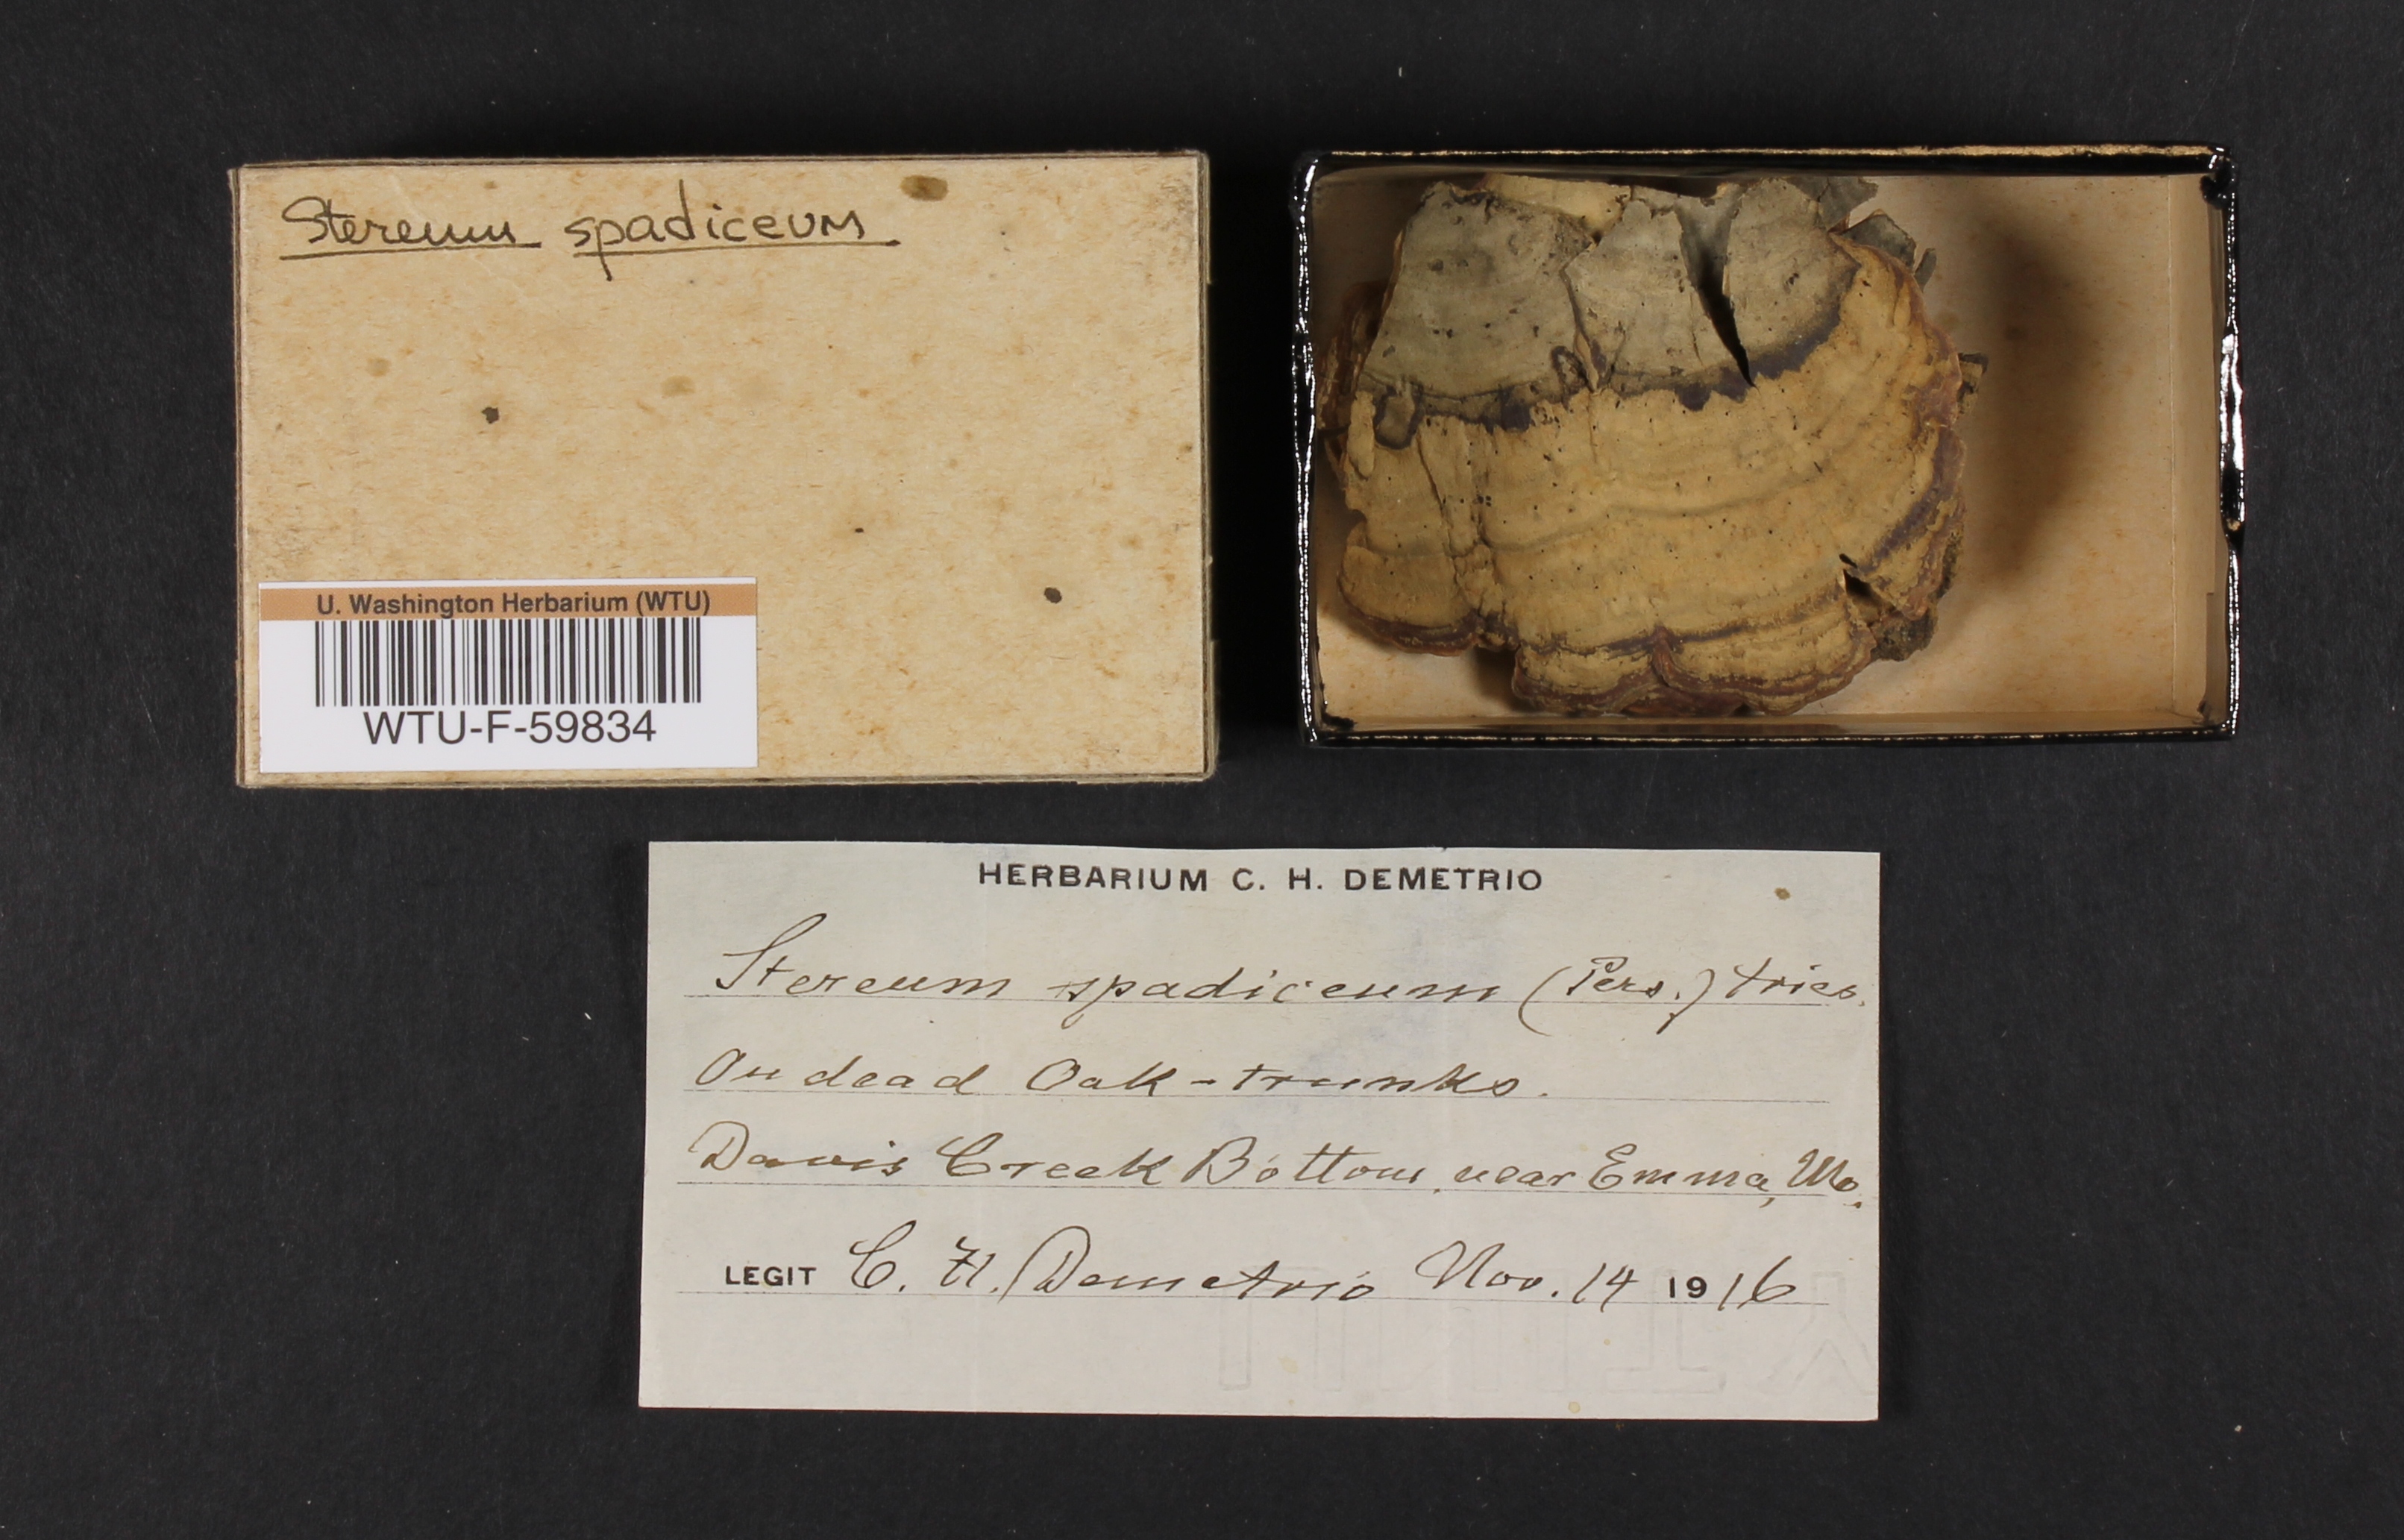 Stereum spadiceum
U. Washington Herbarium (WTU)
WTU-F-59834
HERBARIUM C. H. DEMETRIO
Stereum spadiceum (Pers.) Fries.
On dead Oak-trunks.
Davis Creek Bottom, near Emma, Mo.
LEGIT C. H. Demetrio Nov. 14 1916